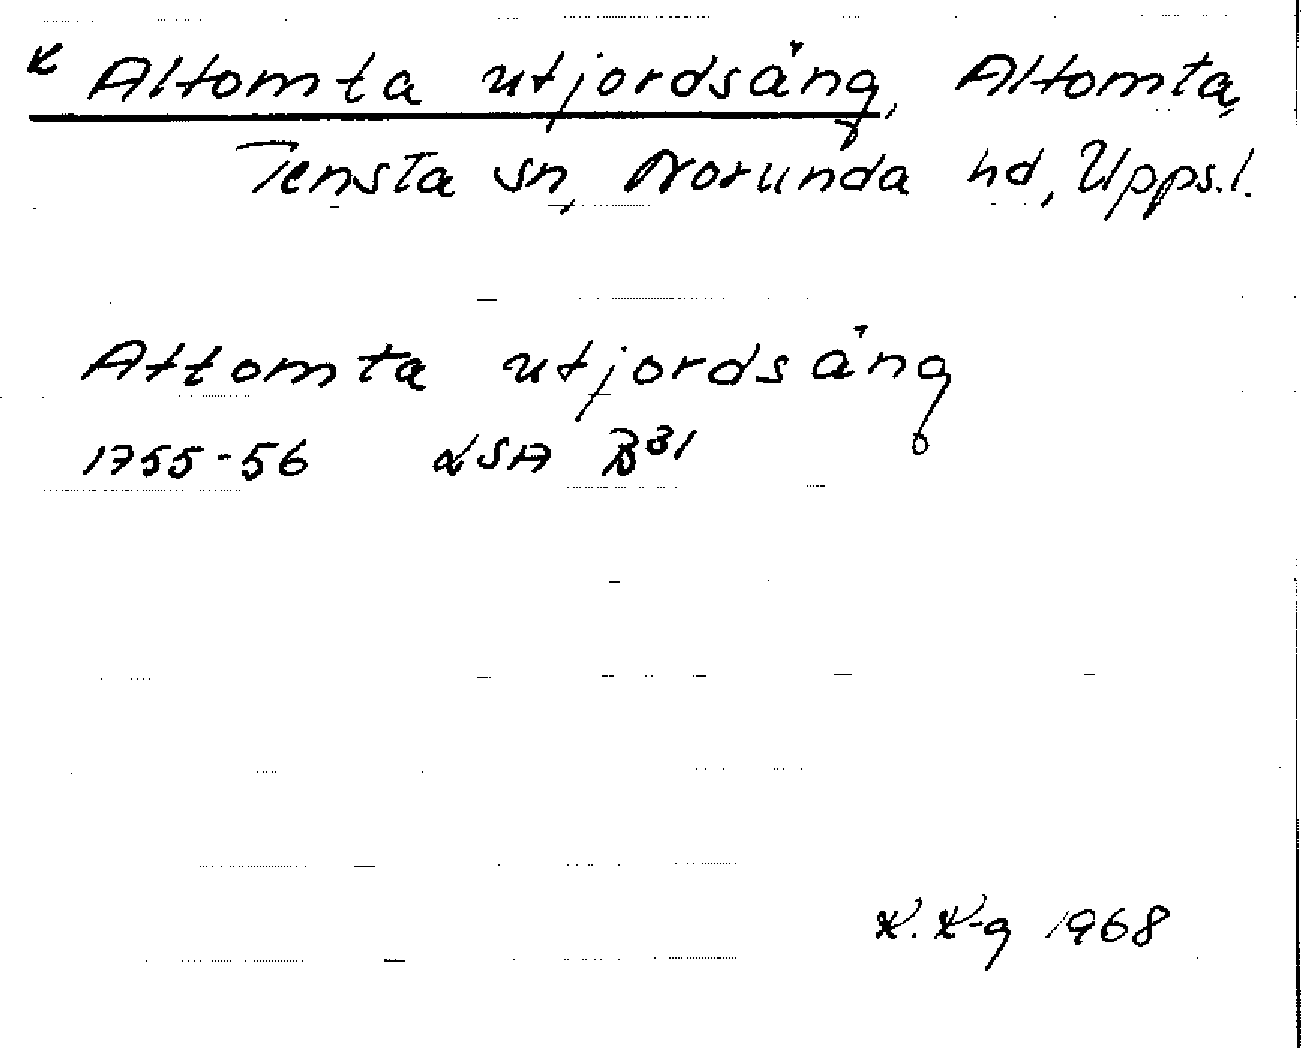 K Altomta utjordsäng, Altomta,
Tensta sn, Norunda hd, Upps.l.
Attomta utjordsäng
1755-56 LSA B31
K. K-g 1968